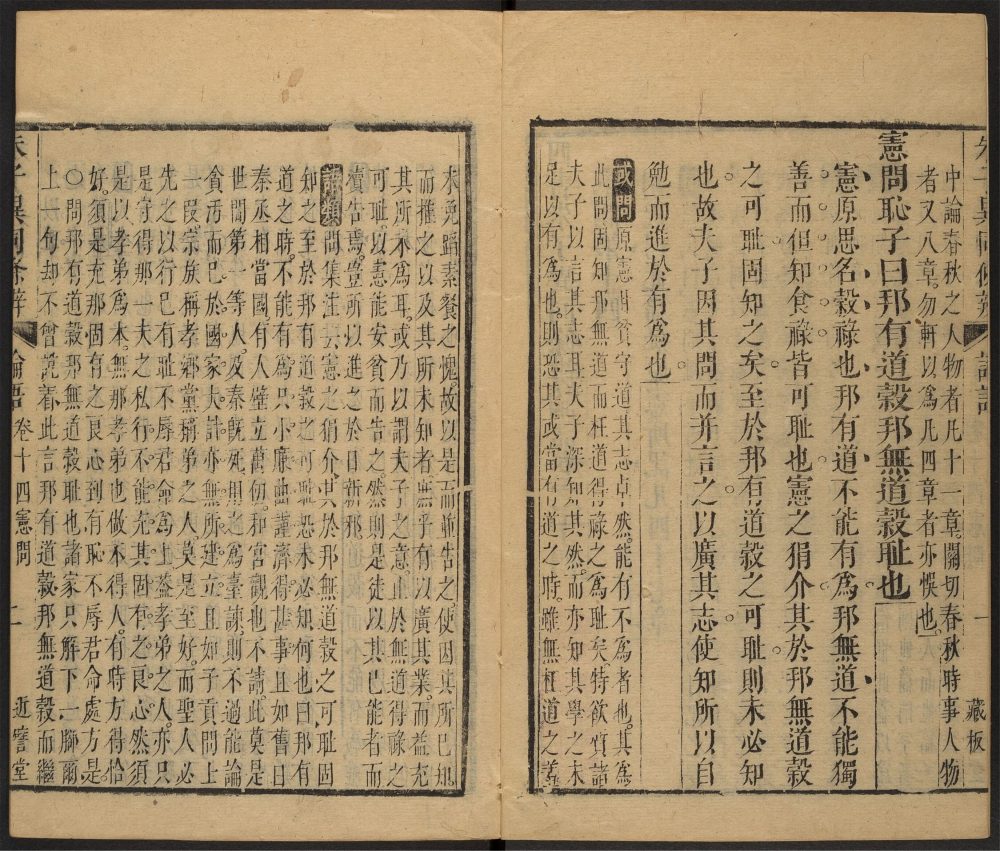 中論春秋之人物者凡十一章關切春秋時事人物
者又八章勿軒以爲凡四章者亦悞也
憲問恥子曰邦有道穀邦無道穀恥也
憲原思名穀祿也邦有道不能有爲邦無道不能獨
善而但知食祿皆可恥也憲之狷介其於邦無道穀
之可恥固知之矣至於邦有道穀之可恥則未必知
也故夫子因其問而并言之以廣其志使知所以自
勉而進於有爲也
或問原憲甘貧守道其志卓然能有不爲者也其爲
此問固知邦無道而枉道得祿之爲恥矣特欲質諸
夫子以言其志耳夫子深知其然而亦知其學之未
足以有爲也則恐其或當有道之時雖無枉道之羞
未免蹈素餐之愧故以是而並告之使因其所已知
而推之以及其所未知者庶乎有以廣其業而益充
其所不爲耳或乃以謂夫子之意止於無道得祿之
可恥以憲能安貧而告之然則是徒以其已能者而
瀆告焉豈所以進之於日新耶
語類問集注云憲之狷介其於邦無道穀之可恥固
知之至於邦有道穀之可恥恐未必知何也曰邦有
道之時不能有爲只小廉曲謹濟得甚事且如舊日
秦丞相當國有人壁立萬仞和宮觀也不請此莫是
世間第一等人及秦旣死用之爲臺諫則不過能論
貪汚而已於國家大計亦無所建立且如子貢問士
一段宗族稱孝鄉黨稱弟之人莫是至好而聖人必
先之以行已有恥不辱君命爲上蓋孝弟之人亦只
是守得那一夫之私行不能充其固有之良心然須
是以孝弟爲本無那孝弟也做不得人有時方得恰
好須是充那固有之良心到有恥不辱君命處方是
○問邦有道穀邦無道穀恥也諸家只解下一腳爾
上一句却不曾說着此言邦有道穀邦無道穀而繼
朱子異同條辨 論語卷十四憲問 二 近譬堂